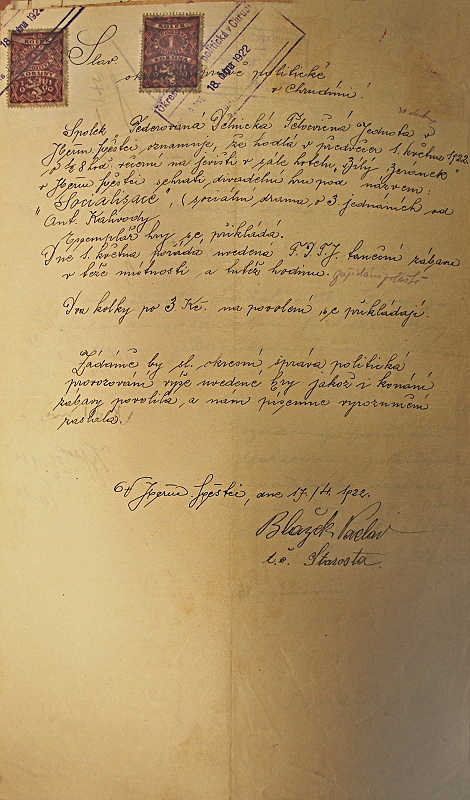 18. dubna 1922
KOLEK
KORUNY
KOLEK
1
KORUNA
politická v Chrudimi
18. dubna 1922
Slav.
politické
v Chrudimi!
Spolek Federovaná Dělnická Tělocvičná Jednota v
Heřm. Městci oznamuje, že hodlá v předvečer 1. května 1922.
o ½8 hod. večerní na jevišti v sále hotelu „Bílý Beránek“
v Heřm. Městci sehrati divadelní hru pod názvem:
„Socialisace“, (sociální drama, o 3. jednáních od
Ant. Kahvody,
Exemplář hry se přikládá.
Dne 1. května pořádá uvedená F.D.T.J. taneční zábavu
v téže místnosti a tutéž hodinu.
Dva kolky po 3 Kč. na povolení, se přikládají.
Žádáme by sl. okresní správa politická
provozování výše uvedené hry jakož i konání
zábavy povolila, a nám písemné vyrozumění
zaslala.
V Heřm. Městci, dne 17/4. 1922.
Blažek Václav
t.č. Starosta.